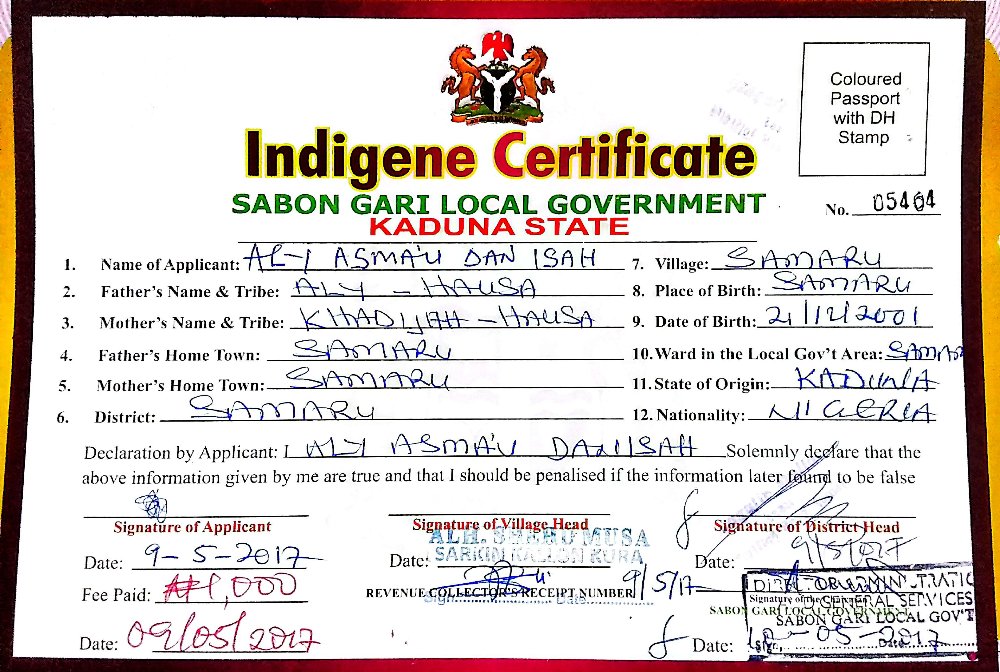 Coloured
Passport
with DH
Stamp
Indigene Certificate
SABON GARI LOCAL GOVERNMENT
KADUNA STATE
No. 05464
1. Name of Applicant: ALY ASMA'U DAN ISAH
2. Father's Name & Tribe: ALY - HAUSA
3. Mother's Name & Tribe: KHADIJAH - HAUSA
4. Father's Home Town: SAMARU
5. Mother's Home Town: SAMARU
6. District: SAMARU
7. Village: SAMARU
8. Place of Birth: SAMARU
9. Date of Birth: 21/12/2001
10. Ward in the Local Gov't Area: SAMAR
11. State of Origin: KADUNA
12. Nationality: NIGERIA
Declaration by Applicant: I ALY ASMA'U DAN ISAH Solemnly declare that the
above information given by me are true and that I should be penalised if the information later found to be false
Signature of Applicant
Date: 9-5-2017
Fee Paid: ₦1,000
Date: 09/05/2017
Signature of Village Head
ALH. SHEHU MUSA
SARKIN
Date: 9/5/17
REVENUE COLLECTOR'S RECEIPT NUMBER
Signature of District Head
Date: 9/5/2017
GENERAL SERVICES
SABON GARI LOCAL GOV'T
Date: 05-2017